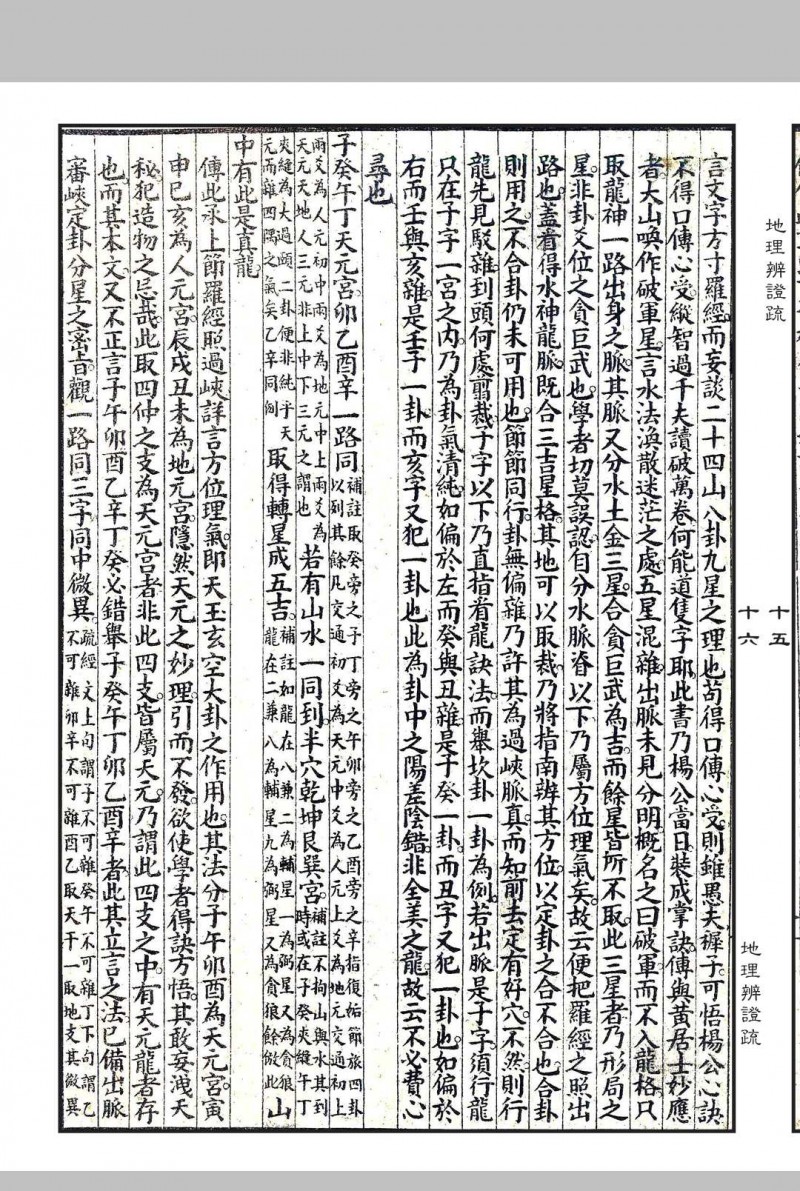 言文字方寸羅經而妄談二十四山八卦九星之理也苟得口傳心受則雖愚夫穉子可悟楊公心訣
不得口傳心受縱智過千夫讀破萬卷何能道隻字耶此書乃楊公當日裝成掌訣傳與黃居士妙應
者大山喚作破軍星言水法渙散迷茫之處五星混雜出脈未見分明概名之曰破軍而不入龍格只
取龍神一路出身之脈其脈又分水土金三星合貪巨武為吉而餘星皆所不取此三星者乃形局之
星非卦爻位之貪巨武也學者切莫誤認自分水脈脊以下乃屬方位理氣矣故云便把羅經之照出
路也蓋看得水神龍脈既合三吉星格其地可以取裁乃將指南辨其方位以定卦之合不合也合卦
則用之不合卦仍未可用也節節同行卦無偏雜乃許其為過峽脈真而知前去定有好穴不然則行
龍先見駁雜到頭何處剪裁子字以下乃直指看龍訣法而舉坎卦一卦為例若出脈是子字須行龍
只在子字一宮之內乃為卦氣清純如偏於左而癸與丑雜是子癸一卦而丑字又犯一卦也如偏於
右而壬與亥雜是壬子一卦而亥字又犯一卦也此為卦中之陽差陰錯非全美之龍故云不必費心
尋也
子癸午丁天元宮卯乙酉辛一路同補註取癸旁之子丁旁之午卯旁之乙酉旁之辛指復姤節旅四卦
以例其餘凡交通初爻為天元中爻為人元上爻為地元交通初上
兩爻為人元初中兩爻為地元中上兩爻為
天元天地人三元非上中下三元之謂也若有山水一同到半穴乾坤艮巽宮補註不拘山與水其到
時或在子癸夾縫午丁
夾縫為大過頤二卦便非純乎天
元而雜四隅之氣矣乙辛同例取得轉星成五吉補註如龍在八兼二為輔星一為弼星又為貪狼
龍在二兼八為輔星九為弼星又為貪狼餘倣此山
中有此是真龍
傳此承上節羅經照過峽詳言方位理氣即天玉玄空大卦之作用也其法分子午卯酉為天元宮寅
申巳亥為人元宮辰戌丑未為地元宮隱然天元之妙理引而不發欲使學者得訣方悟其敢妄洩天
秘犯造物之忌哉此取四仲之支為天元宮者非此四支皆屬天元乃謂此四支之中有天元龍者存
也而其本文又不正言子午卯酉乙辛丁癸必錯舉子癸午丁卯乙酉辛者此其立言之法已備出脈
審峽定卦分星之密旨觀一路同三字同中微異疏經文上句謂子不可雜癸午不可雜丁下句謂乙
不可雜卯辛不可雜酉乙取天干一取地支其微異
地理辨證疏
十五
十六
地理辨證疏